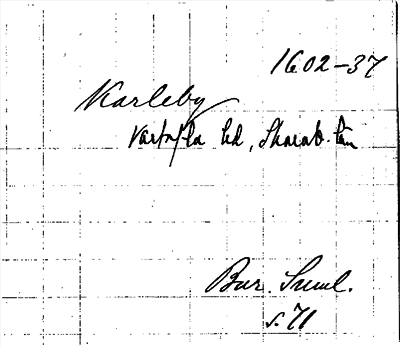 1602-37
Karleby
Vartofta hd, Skarab. län
Bur. Suml.
s. 71